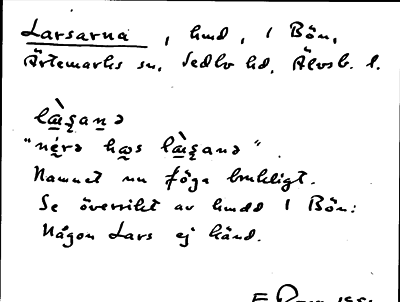 Larsarna, hmd, i Bön,
Ärtemarks sn, Vedbo hd, Älvsb. l.
læ̀ʂanə
"nérə hos læ̀ʂanə"
Namnet nu föga brukligt.
Se översikt av hmdd i Bön:
Någon Lars ej känd.